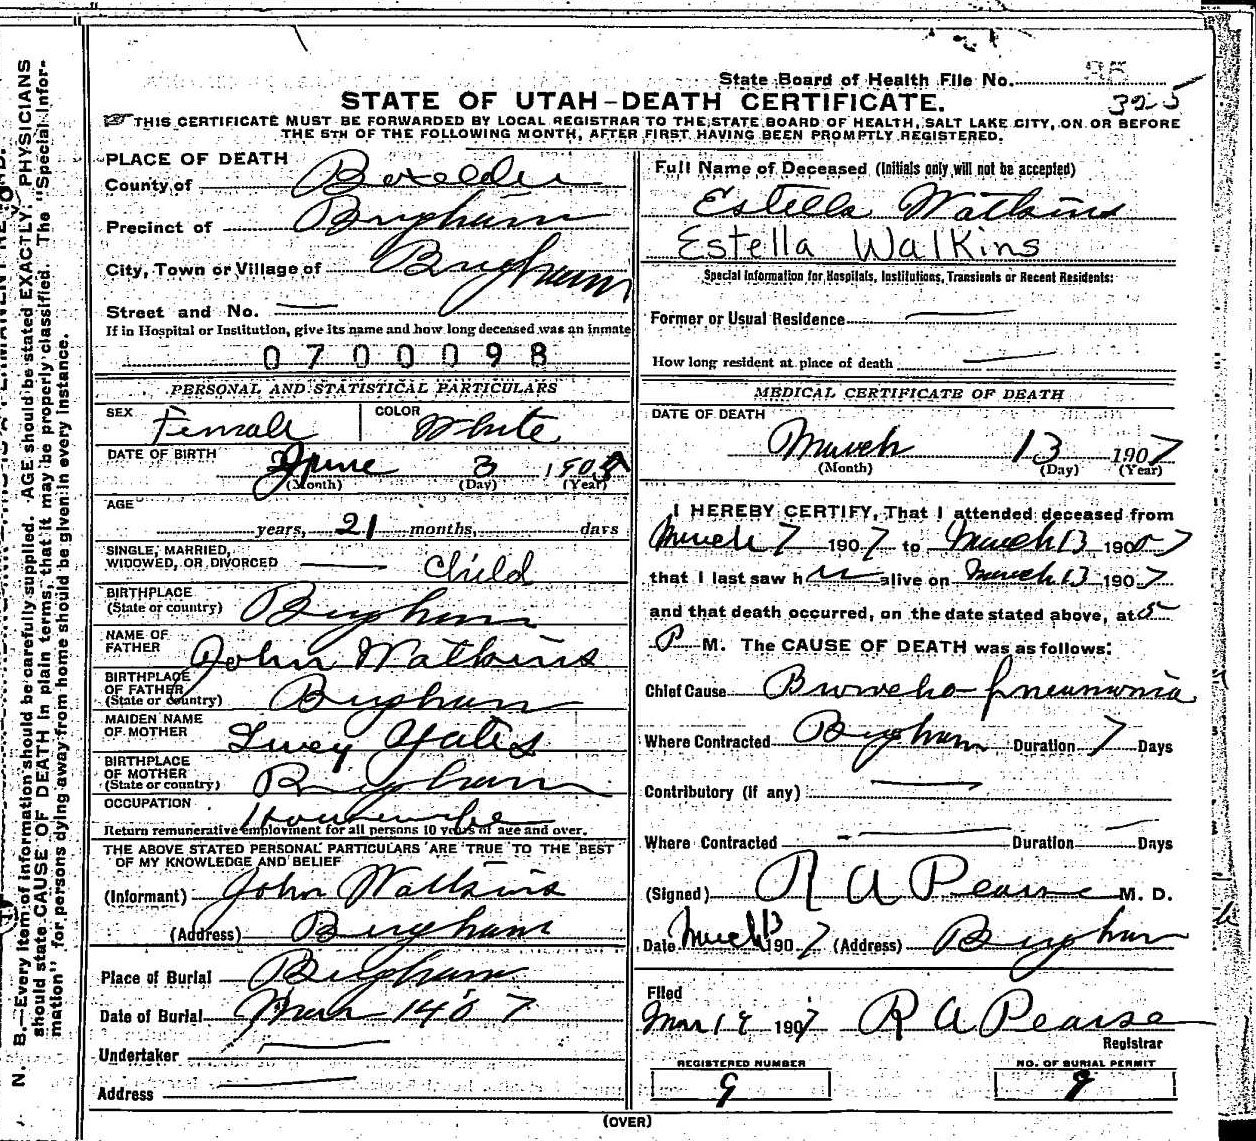 State Board of Health File No. 98
325
STATE OF UTAH–DEATH CERTIFICATE.
☞ THIS CERTIFICATE MUST BE FORWARDED BY LOCAL REGISTRAR TO THE STATE BOARD OF HEALTH, SALT LAKE CITY, ON OR BEFORE
THE 5TH OF THE FOLLOWING MONTH, AFTER FIRST HAVING BEEN PROMPTLY REGISTERED.
PLACE OF DEATH
County of Boxelder
Precinct of Brigham
City, Town or Village of Brigham
Street and No. —
If in Hospital or Institution, give its name and how long deceased was an inmate
0700098
PERSONAL AND STATISTICAL PARTICULARS
SEX Female COLOR White
DATE OF BIRTH June 3 190
(Month) (Day) (Year)
AGE
years, 21 months, days
SINGLE, MARRIED,
WIDOWED, OR DIVORCED — Child
BIRTHPLACE
(State or country) Brigham
NAME OF
FATHER John Watkins
BIRTHPLACE
OF FATHER
(State or country) Brigham
MAIDEN NAME
OF MOTHER Lucy Yates
BIRTHPLACE
OF MOTHER
(State or country) Brigham
OCCUPATION Housewife
Return remunerative employment for all persons 10 years of age and over.
THE ABOVE STATED PERSONAL PARTICULARS ARE TRUE TO THE BEST
OF MY KNOWLEDGE AND BELIEF
(Informant) John Watkins
(Address) Brigham
Place of Burial Brigham
Date of Burial Mar 14 07
Undertaker —
Address —
Full Name of Deceased (Initials only will not be accepted)
Estella Watkins
Estella Walkins
Special Information for Hospitals, Institutions, Transients or Recent Residents:
Former or Usual Residence —
How long resident at place of death —
MEDICAL CERTIFICATE OF DEATH
DATE OF DEATH
March 13 1907
(Month) (Day) (Year)
I HEREBY CERTIFY, That I attended deceased from
March 7 1907 to March 13 1907
that I last saw her alive on March 13 1907
and that death occurred, on the date stated above, at 5
P M. The CAUSE OF DEATH was as follows:
Chief Cause Broncho-pneumonia
Where Contracted Brigham Duration 7 Days
Contributory (if any) —
Where Contracted — Duration — Days
(Signed) R A Pearse M. D.
Date March 13 1907 (Address) Brigham
Filed
Mar 19 1907 R A Pearse
Registrar
REGISTERED NUMBER NO. OF BURIAL PERMIT
9 9
(OVER)
N. B.—Every item of information should be carefully supplied. AGE should be stated EXACTLY. PHYSICIANS
should state CAUSE OF DEATH in plain terms, that it may be properly classified. The "Special Infor-
mation" for persons dying away from home should be given in every instance.